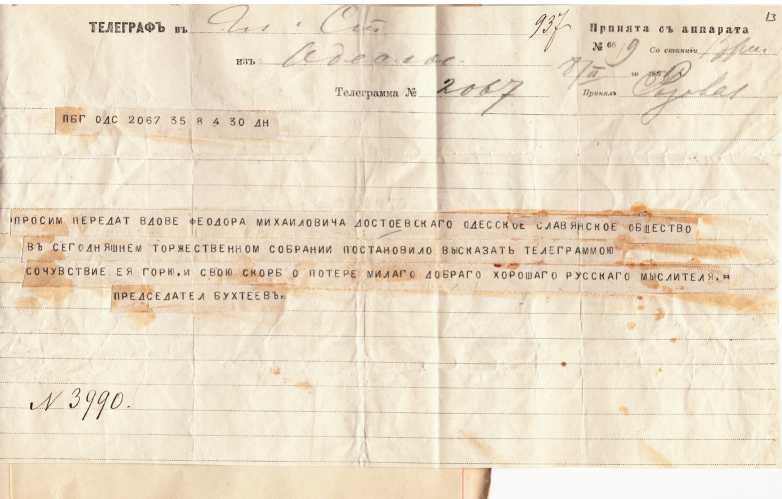 13
ТЕЛЕГРАФЪ въ
937
Принята съ аппарата
№ 66 9 Со станціи
изъ Одессы.
8/II
Телеграмма № 2067
Принялъ
ПБГ ОДС 2067 35 8 4 30 ДН
ПРОСИМ ПЕРЕДАТ ВДОВЕ ФЕОДОРА МИХАИЛОВИЧА ДОСТОЕВСКАГО ОДЕССКОЕ СЛАВЯНСКОЕ ОБЩЕСТВО
ВЪ СЕГОДНЯШНЕМ ТОРЖЕСТВЕННОМ СОБРАНИИ ПОСТАНОВИЛО ВЫСКАЗАТЬ ТЕЛЕГРАММОЮ
СОЧУВСТВИЕ ЕЯ ГОРЮ, И СВОЮ СКОРБ О ПОТЕРЕ МИЛАГО ДОБРАГО ХОРОШАГО РУССКАГО МЫСЛИТЕЛЯ.=
ПРЕДСЕДАТЕЛ БУХТЕЕВЪ.
N 3990.